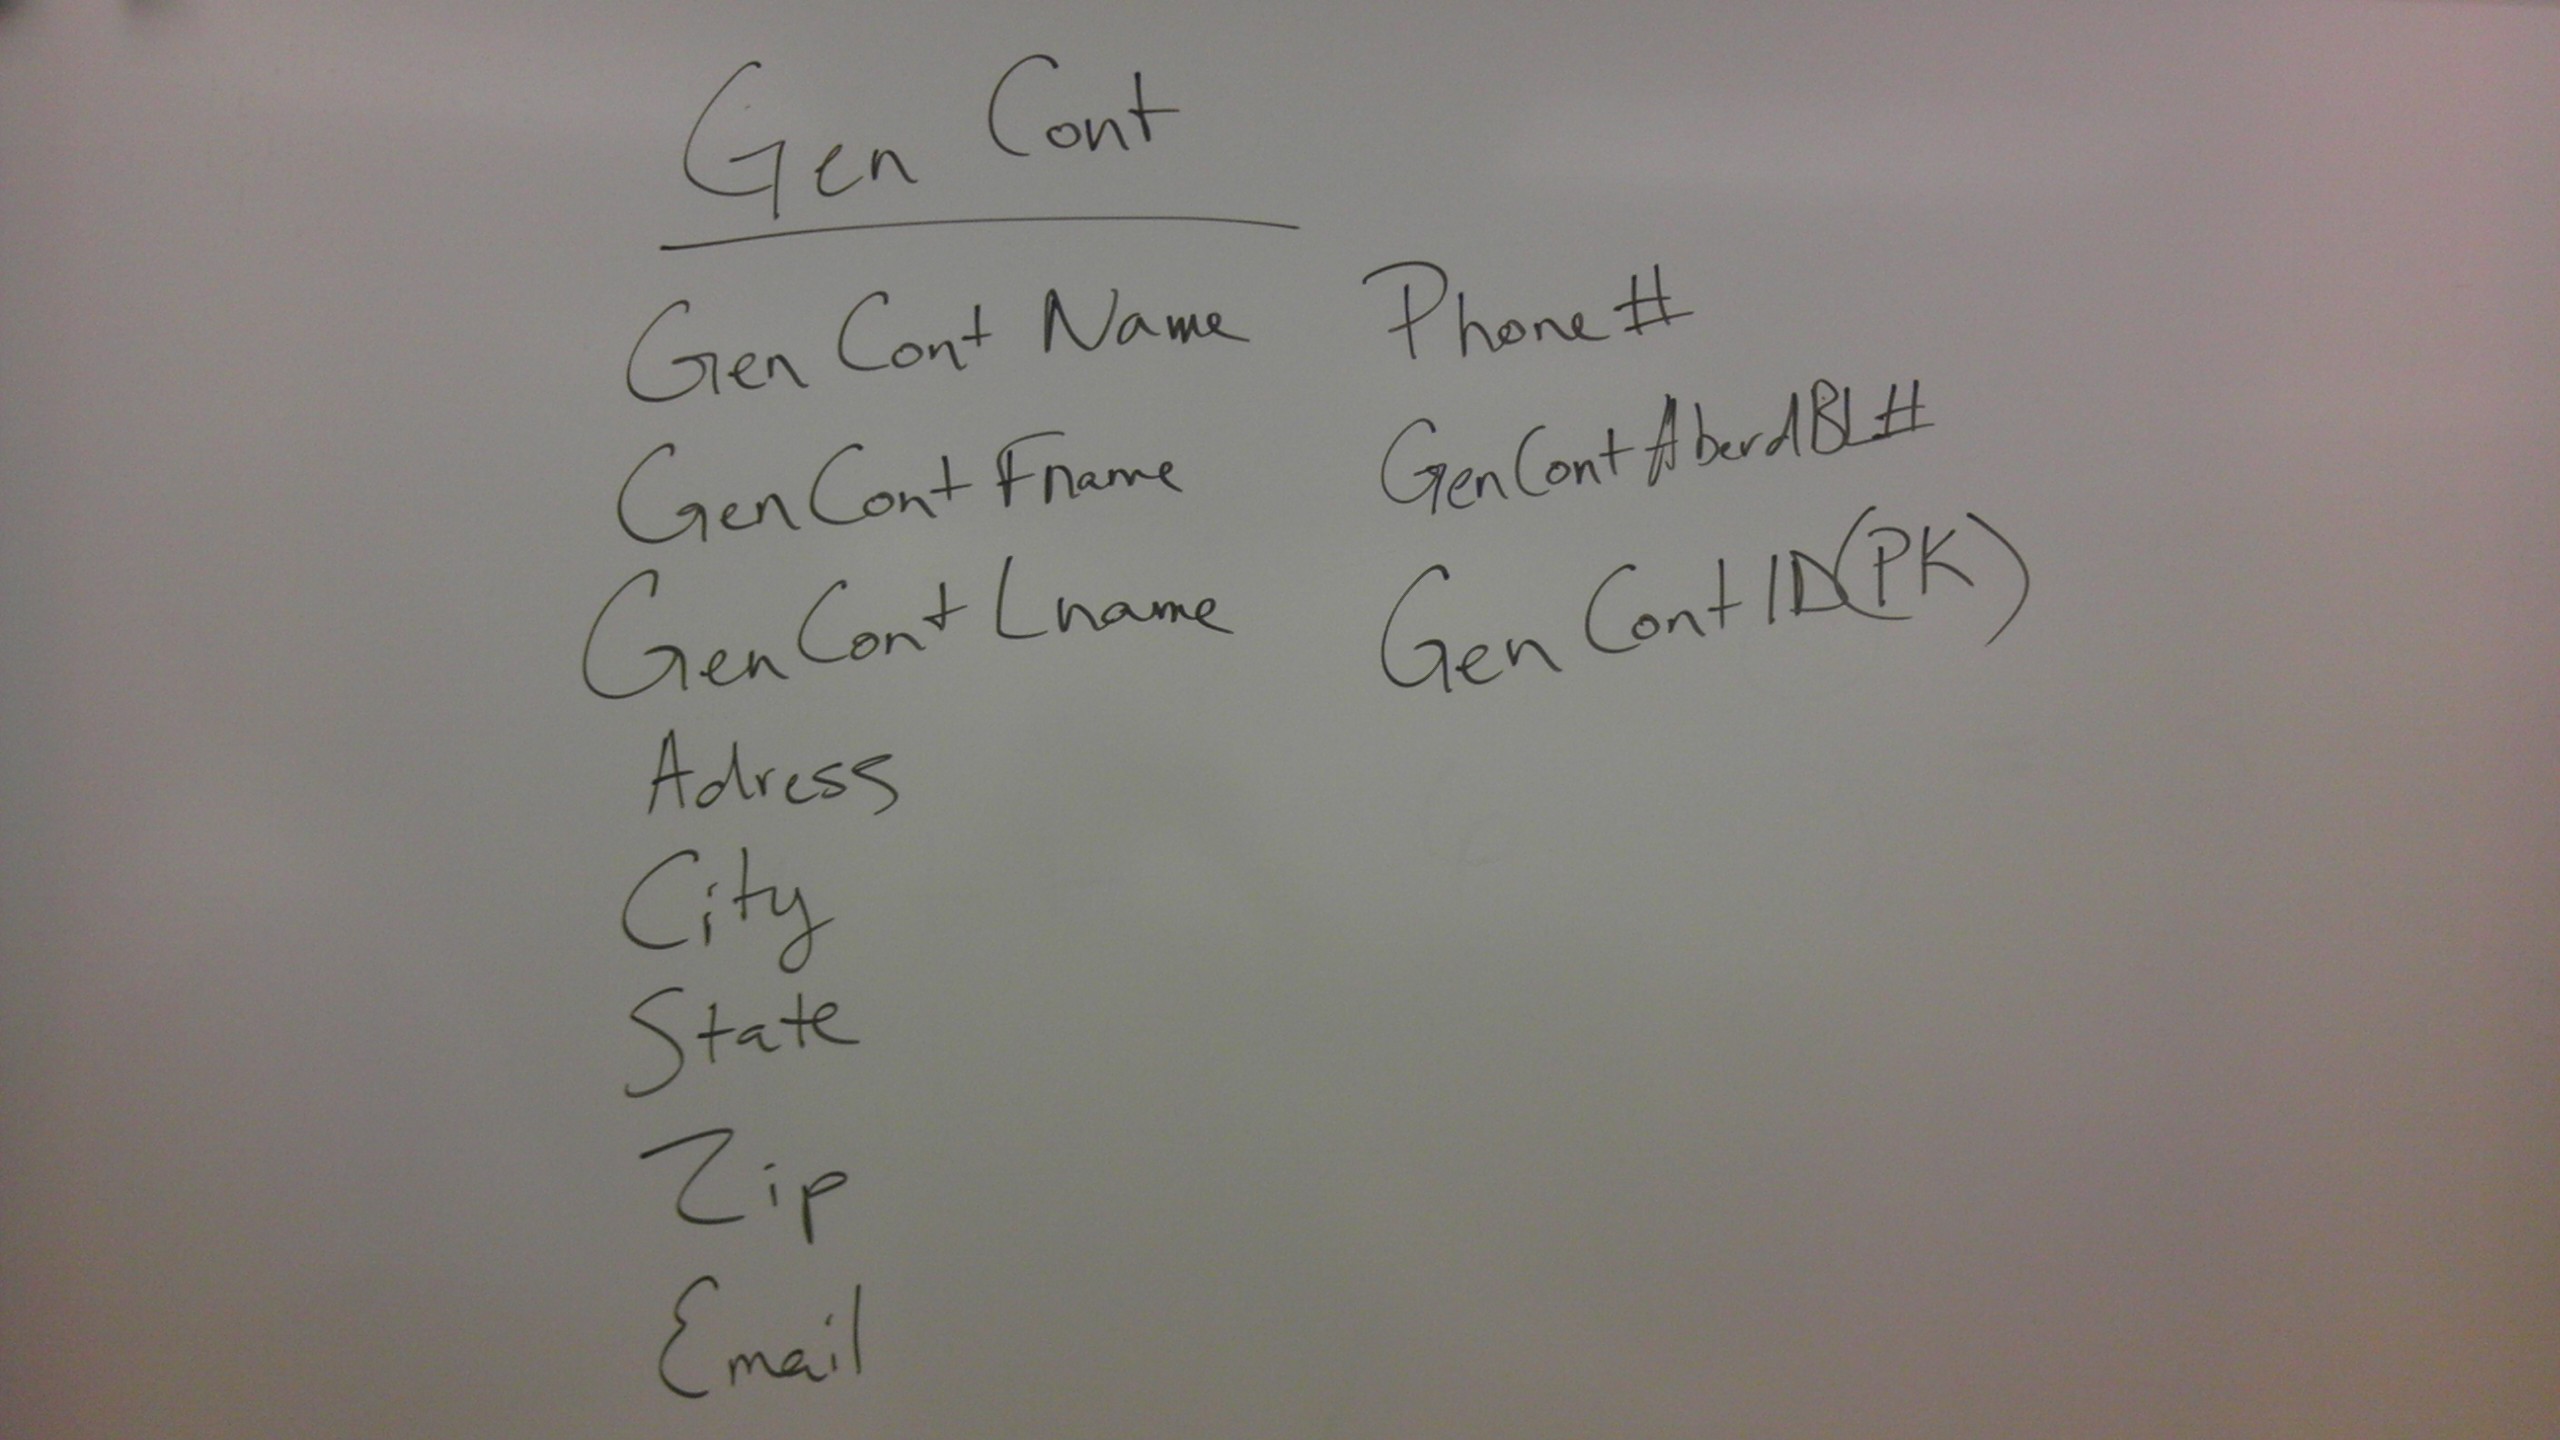 Gen Cont
Gen Cont Name
Gen Cont Fname
Gen Cont Lname
Adress
City
State
Zip
Email
Phone #
GenContAberdBL#
Gen Cont ID(PK)